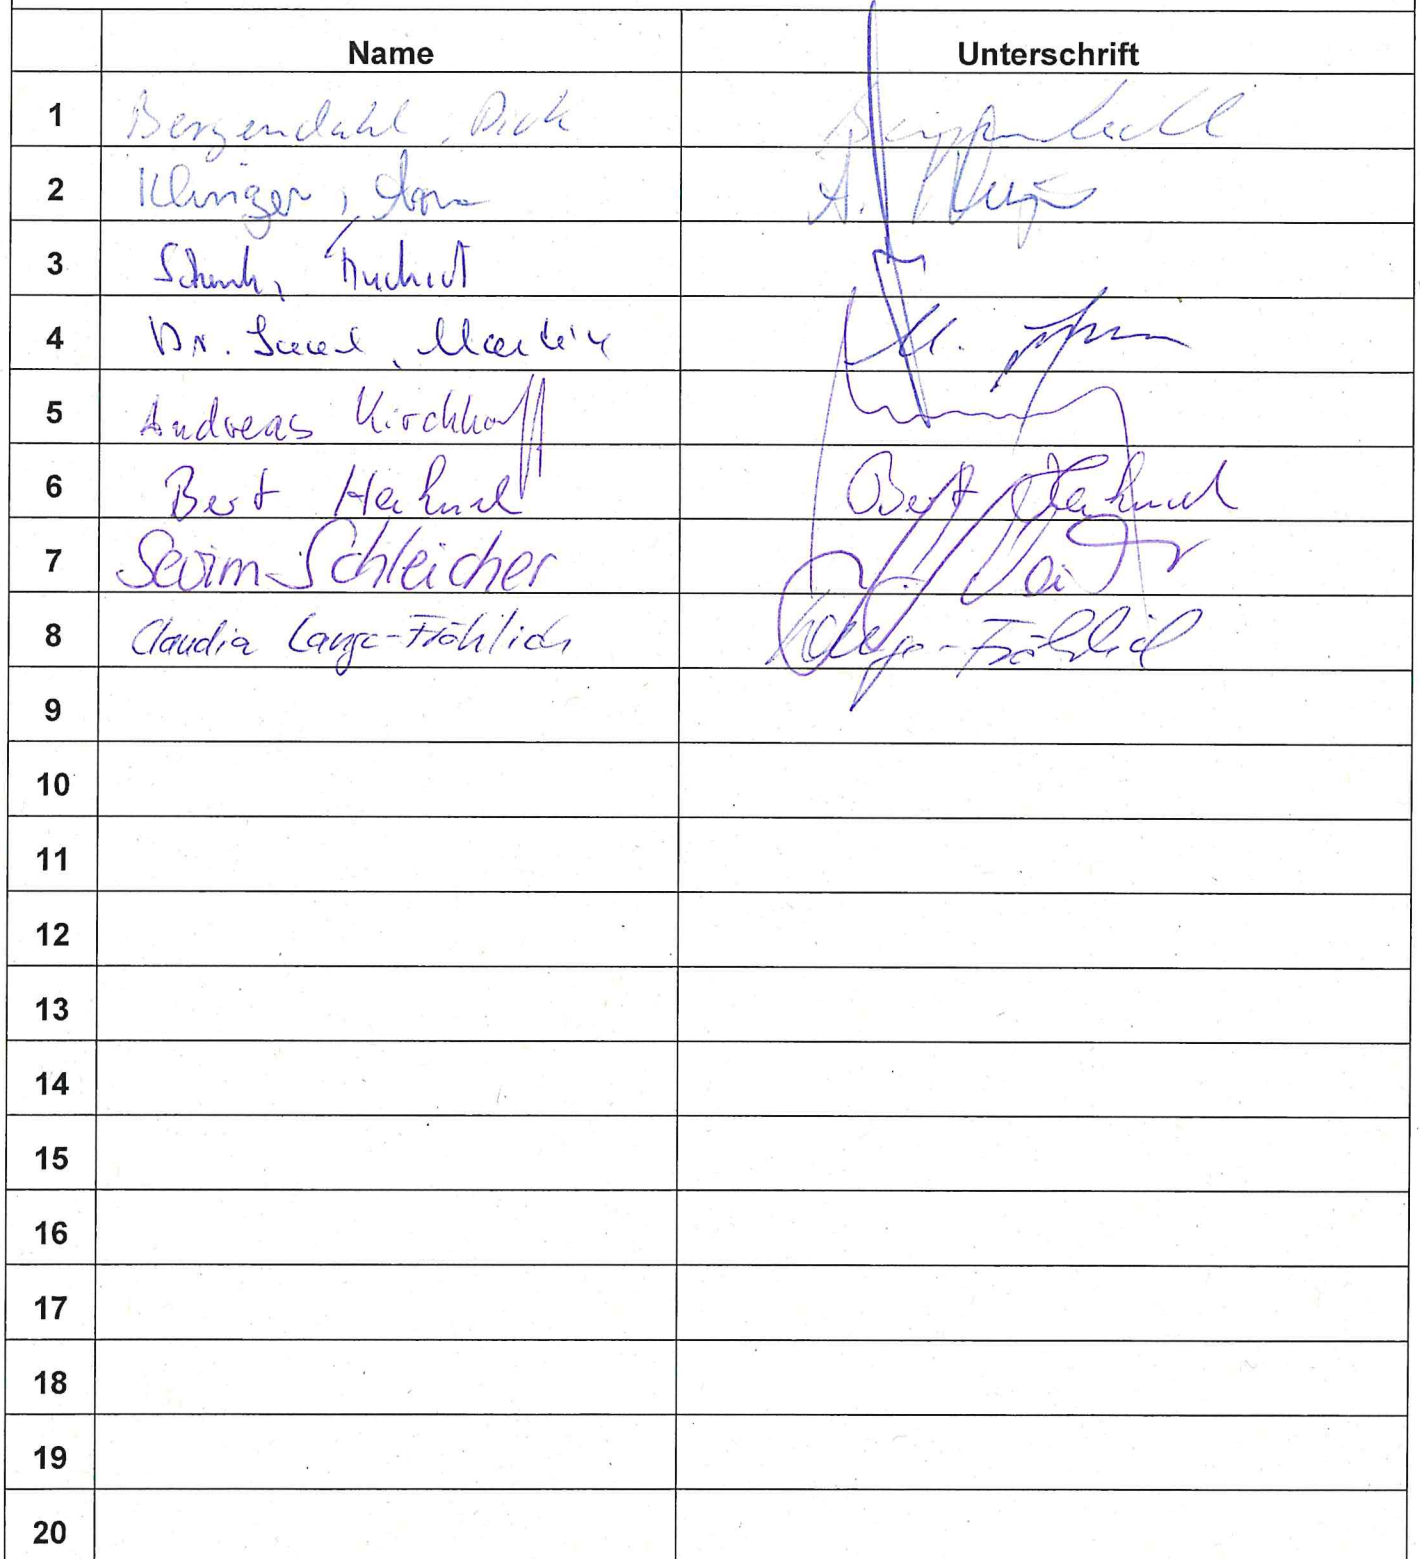 Name Unterschrift
1 Bergendahl, Dirk
2 Klinger, A. Klinger
3 Schenk,
4 Dr. Martin M.
5 Andreas Kirchhoff
6 Bert Hähnel Bert Hähnel
7 Sevim-Schleicher
8 Claudia Lange-Fröhlich Lange-Fröhlich
9
10
11
12
13
14
15
16
17
18
19
20